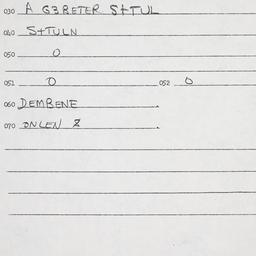 030 A G3BETER S+TUL
040 S+TULN
050 O
051 O 052 O
060 DEMBENE
070 ONLEN 8